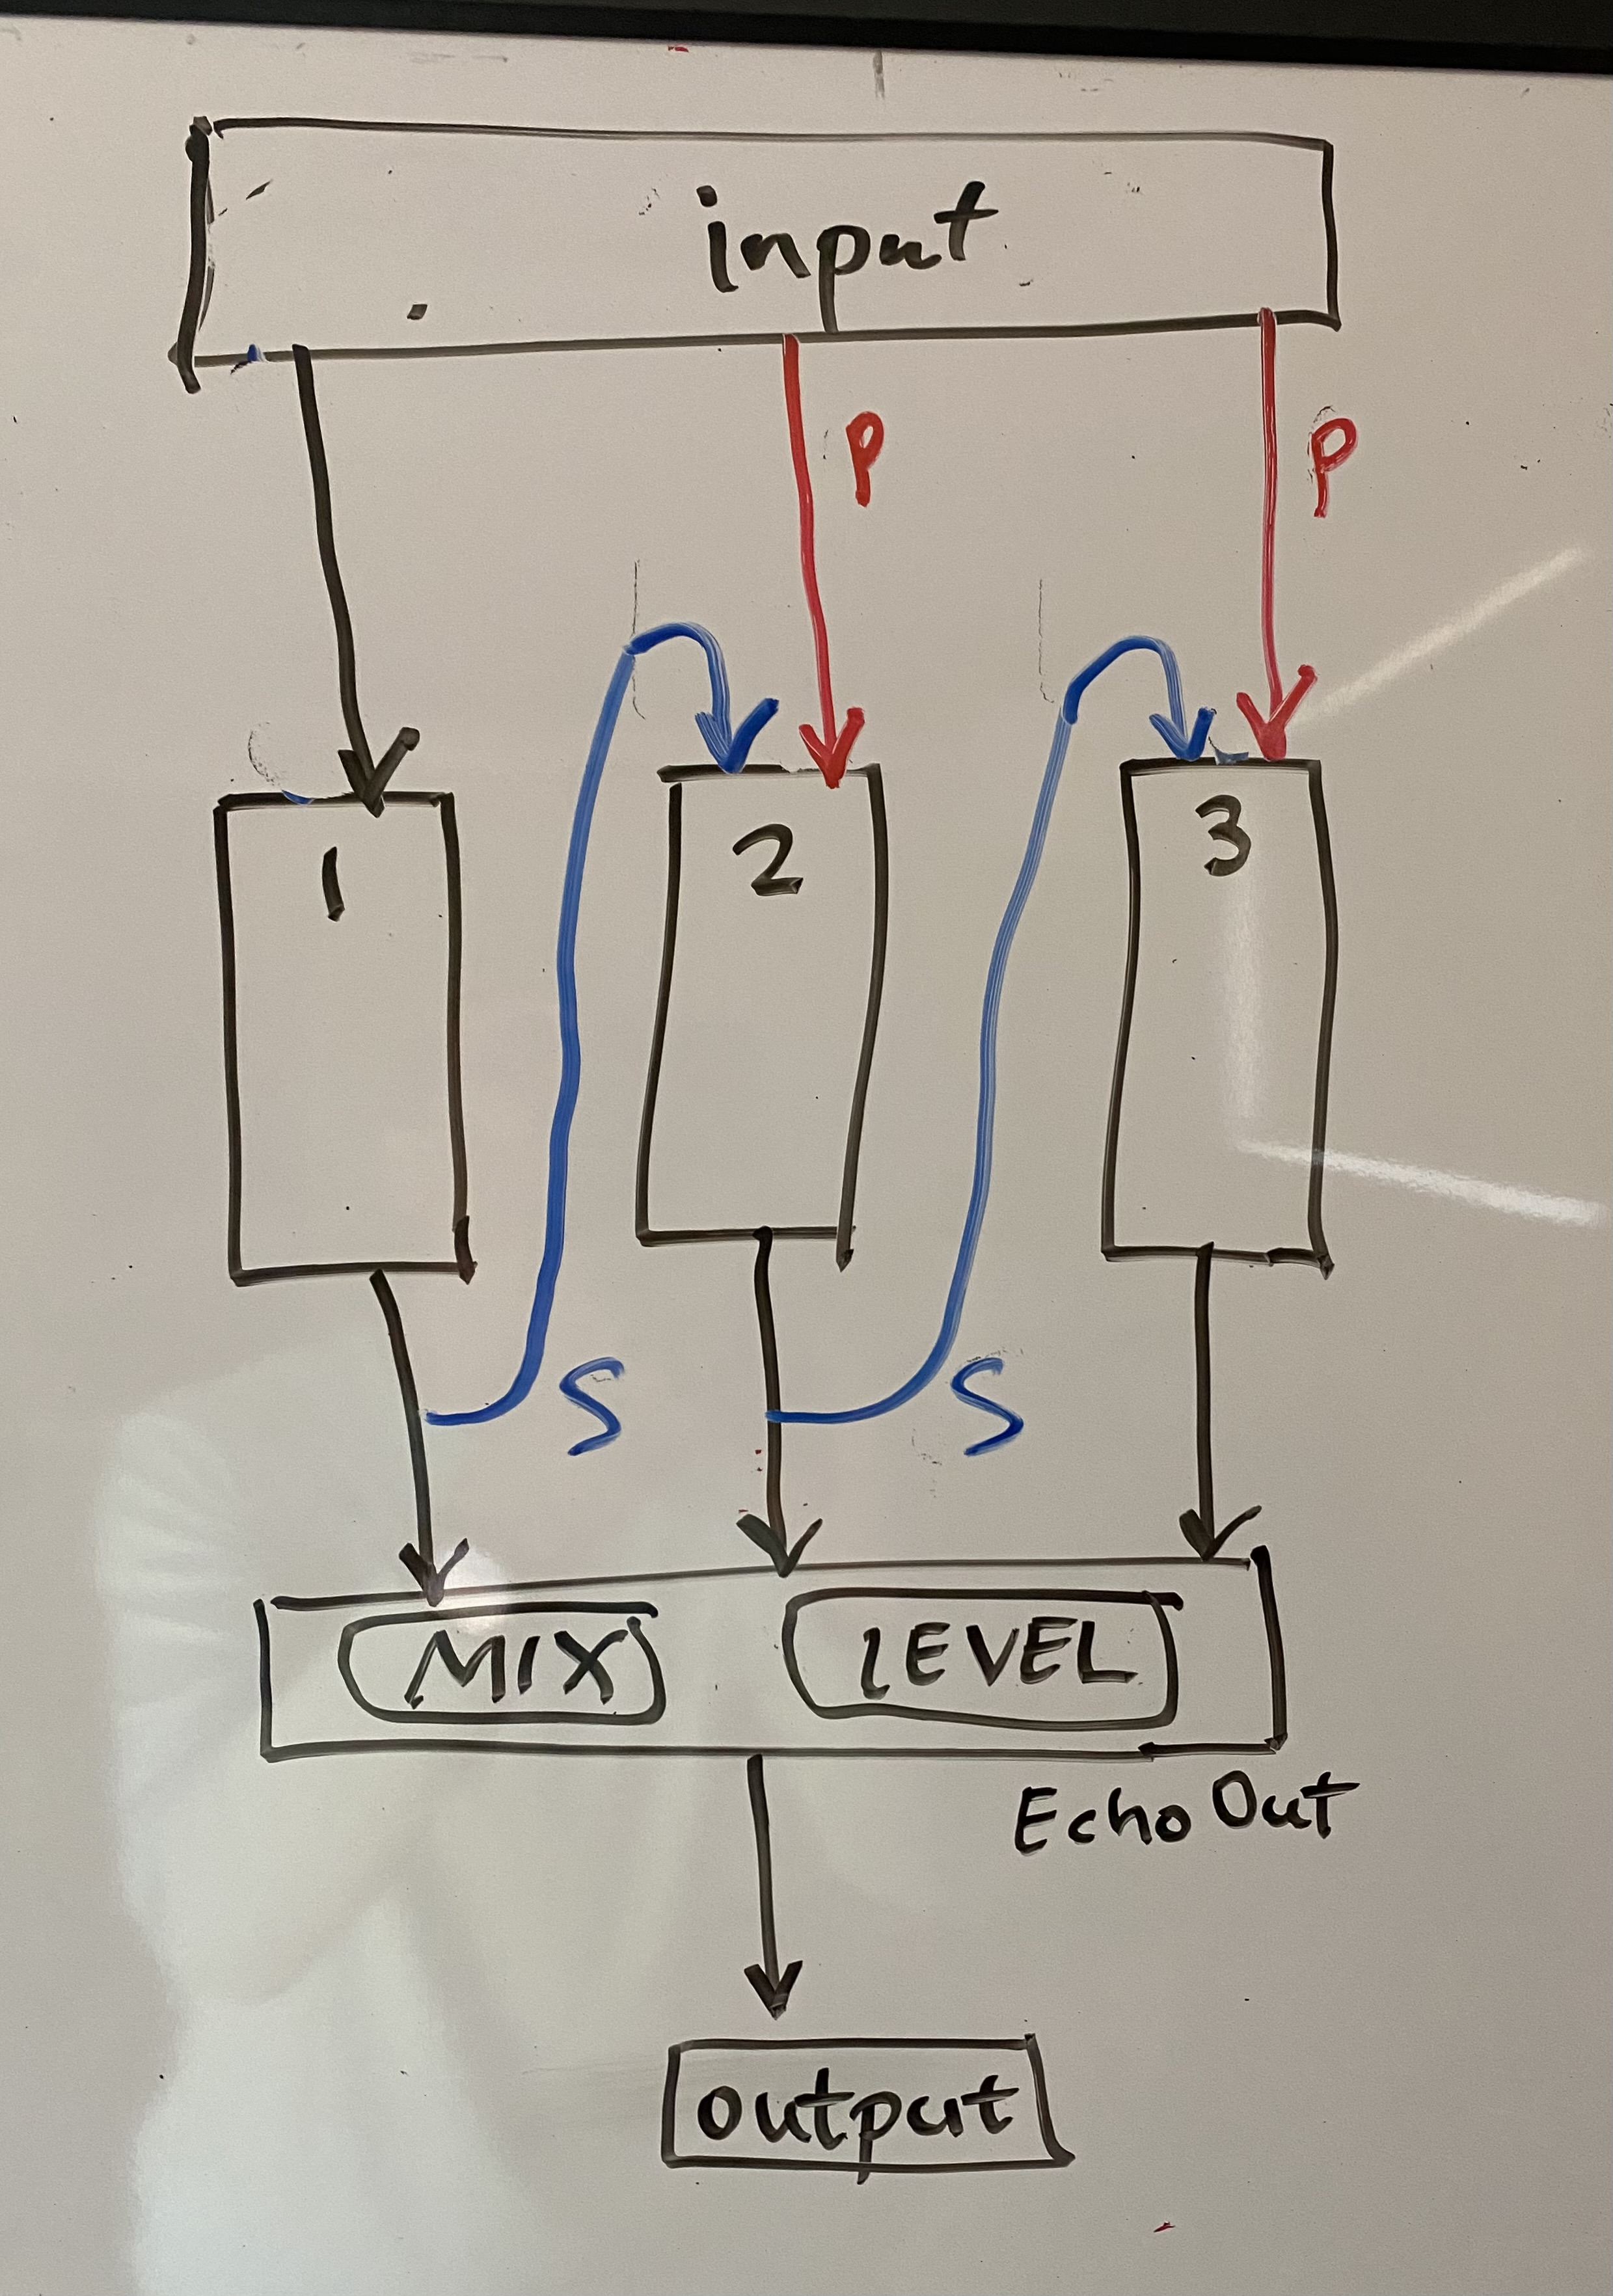 input
P
P
1
2
3
S
S
MIX
LEVEL
Echo Out
output